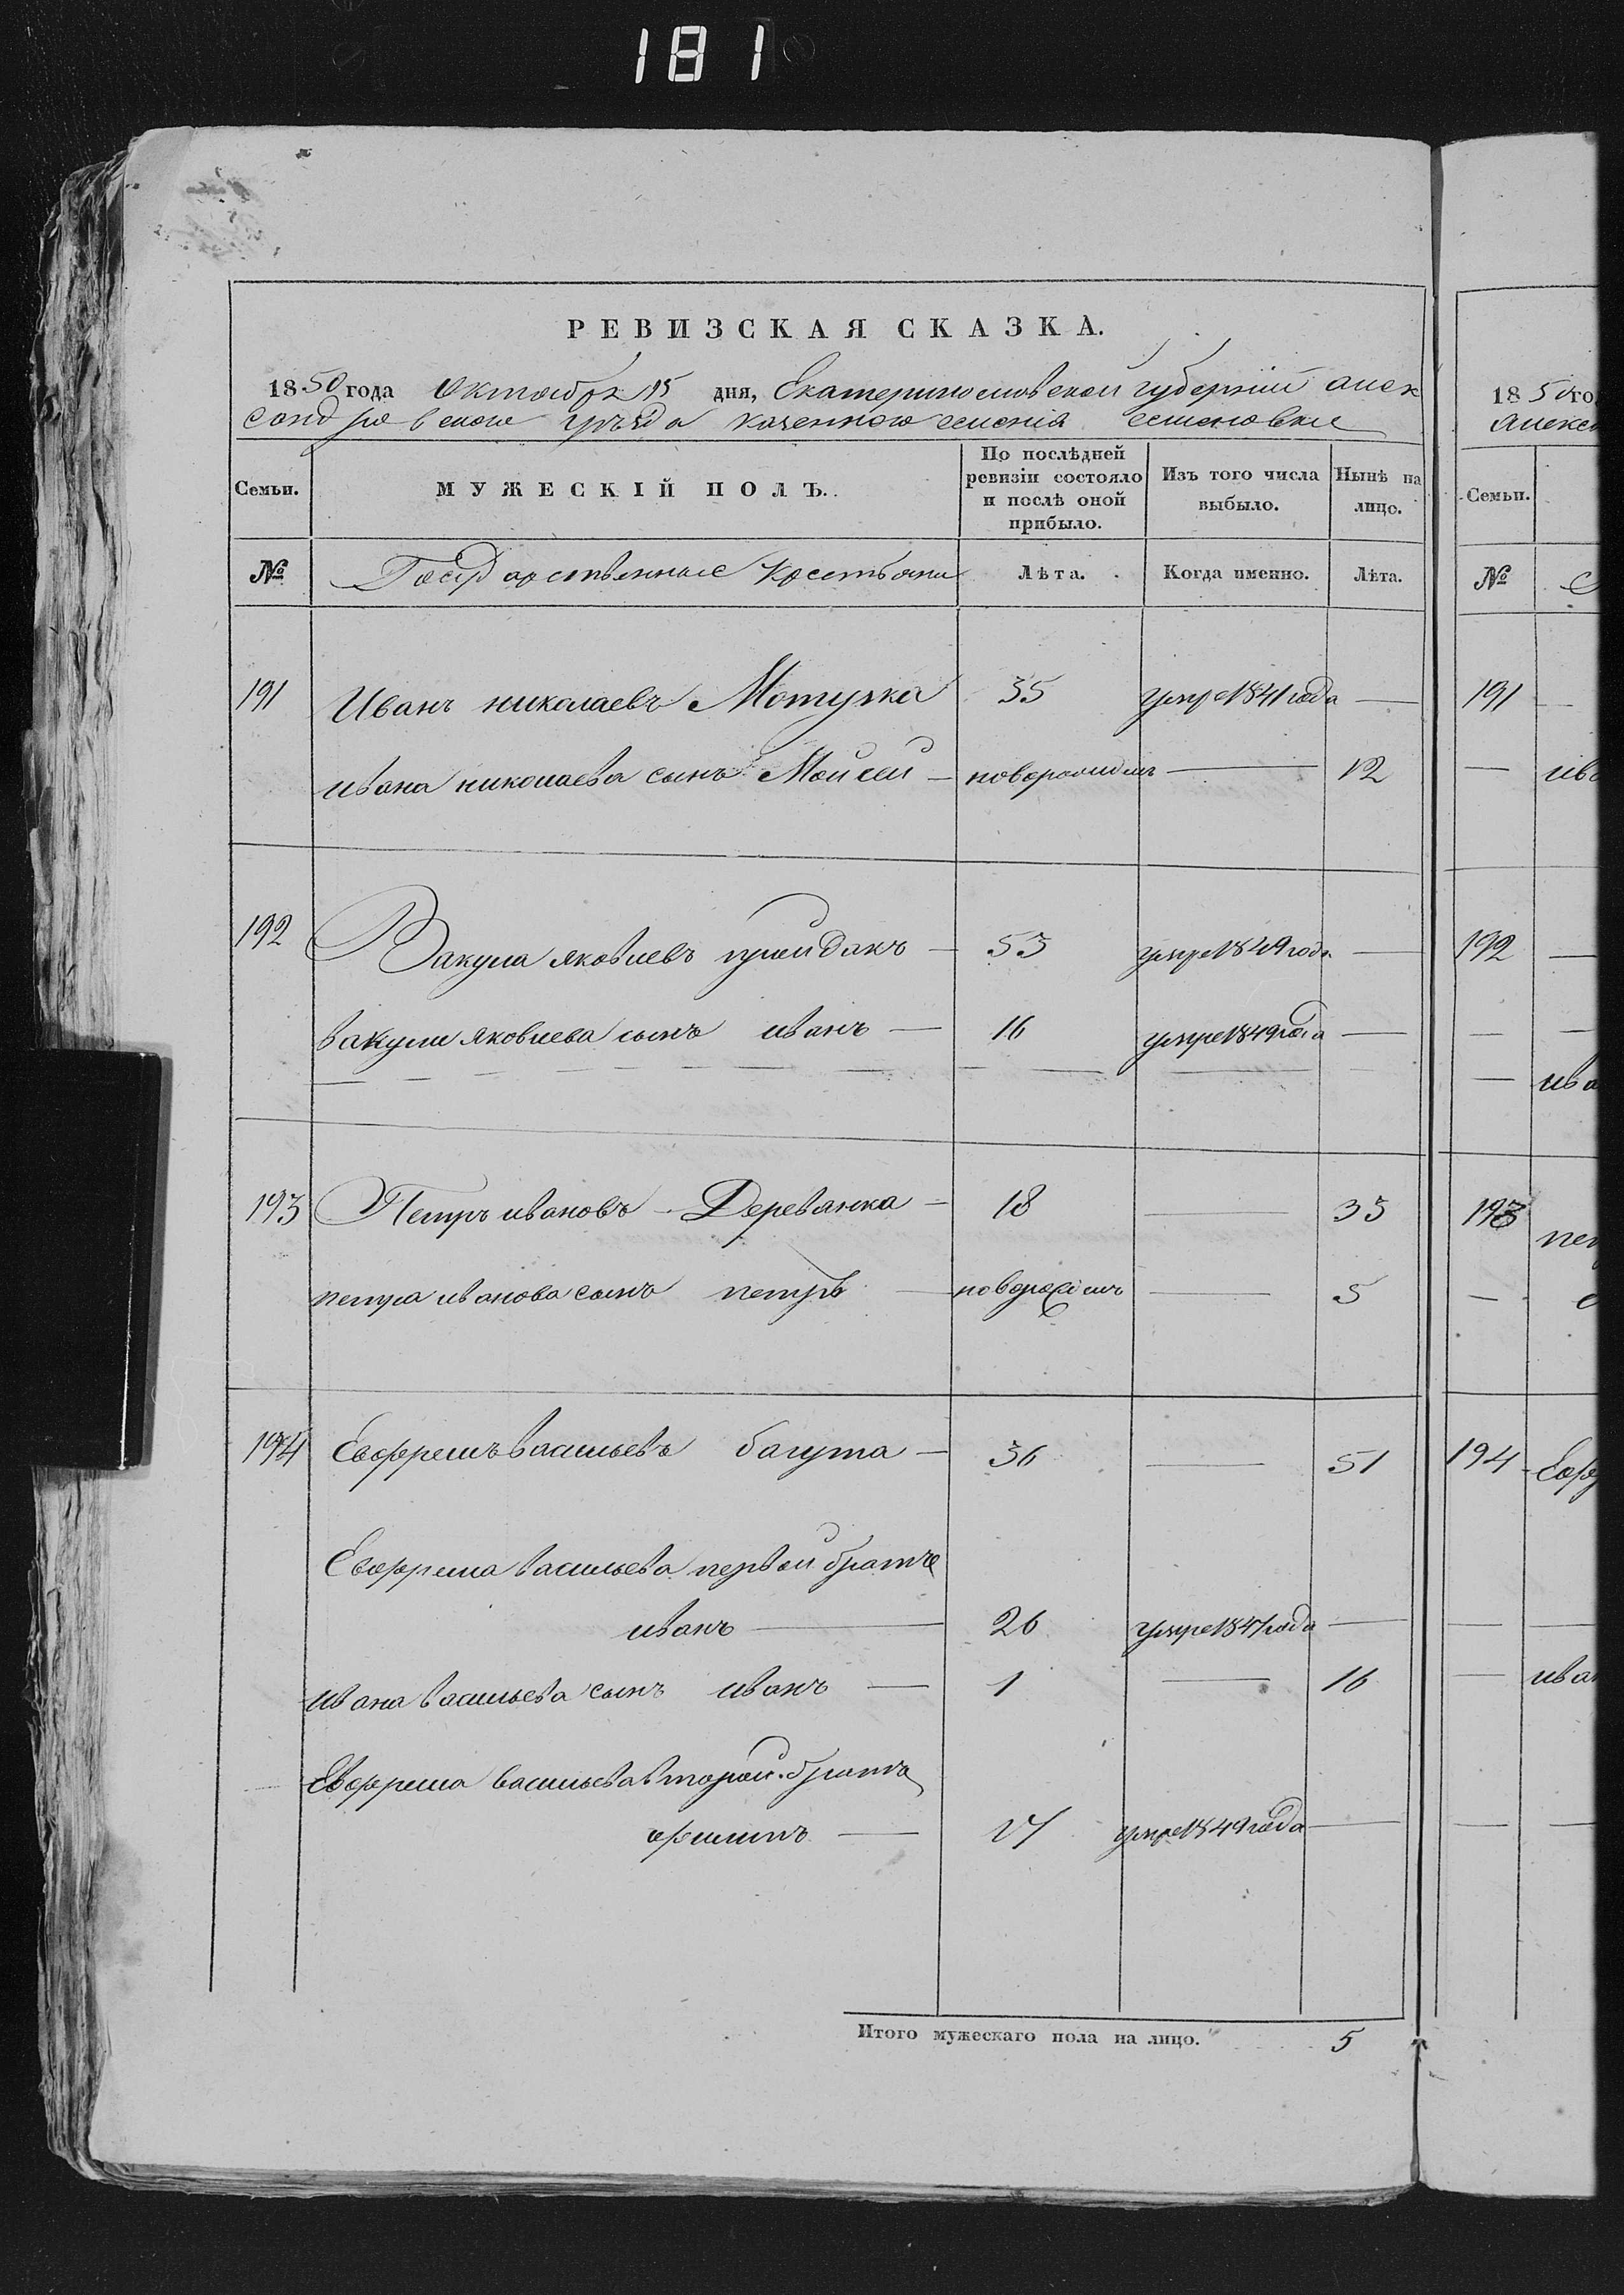 181
РЕВИЗСКАЯ СКАЗКА.
1850 года Октября 15 дня, Екатеринославской губернии алек
сандровского уезда казенного селенія
Семьи. МУЖЕСКІЙ ПОЛЪ. По послѣдней ревизіи состояло и послѣ оной прибыло. Изъ того числа выбыло. Нынѣ на лицо.
№ Государственные крестьяне Лѣта. Когда именно. Лѣта.
191 Иванъ николаевъ 35 умре 1841 года —
ивана николаева сынъ Моисей — новорожден — 12
192 Вакула яковлевъ — 53 умре 1849 года —
вакули яковлева сынъ иванъ — 16 умре 1849 года —
193 Петръ ивановъ Дереванка — 18 — 33
петра иванова сынъ петръ — новорожден — 5
194 Евфремъ васильевъ багута — 36 — 51
Евфрема васильева первой братъ
иванъ — 26 умре 1847 года —
ивана васильева сынъ иванъ — 1 — 16
Евфрема васильева второй братъ
филипъ — умре 1849 года —
Итого мужескаго пола на лицо. 5
1850 го
алекса
Семьи.
№
191 —
— ива
192 —
— —
— ива
193 пет
—
194 Евф
— —
— иван
— —